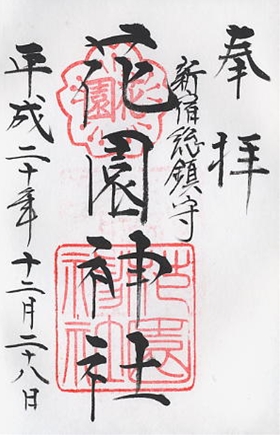 奉拝
新宿総鎮守
花園神社
平成二十年十二月二十八日
花園
花園神社